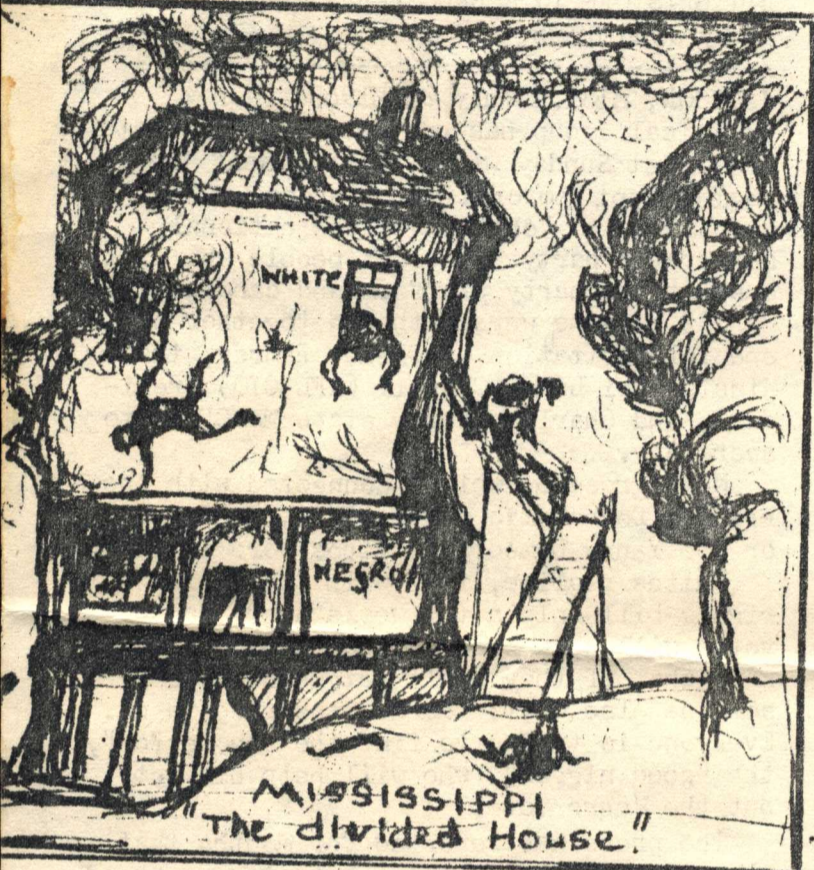 WHITE
NEGRO
MISSISSIPPI
"The divided House."